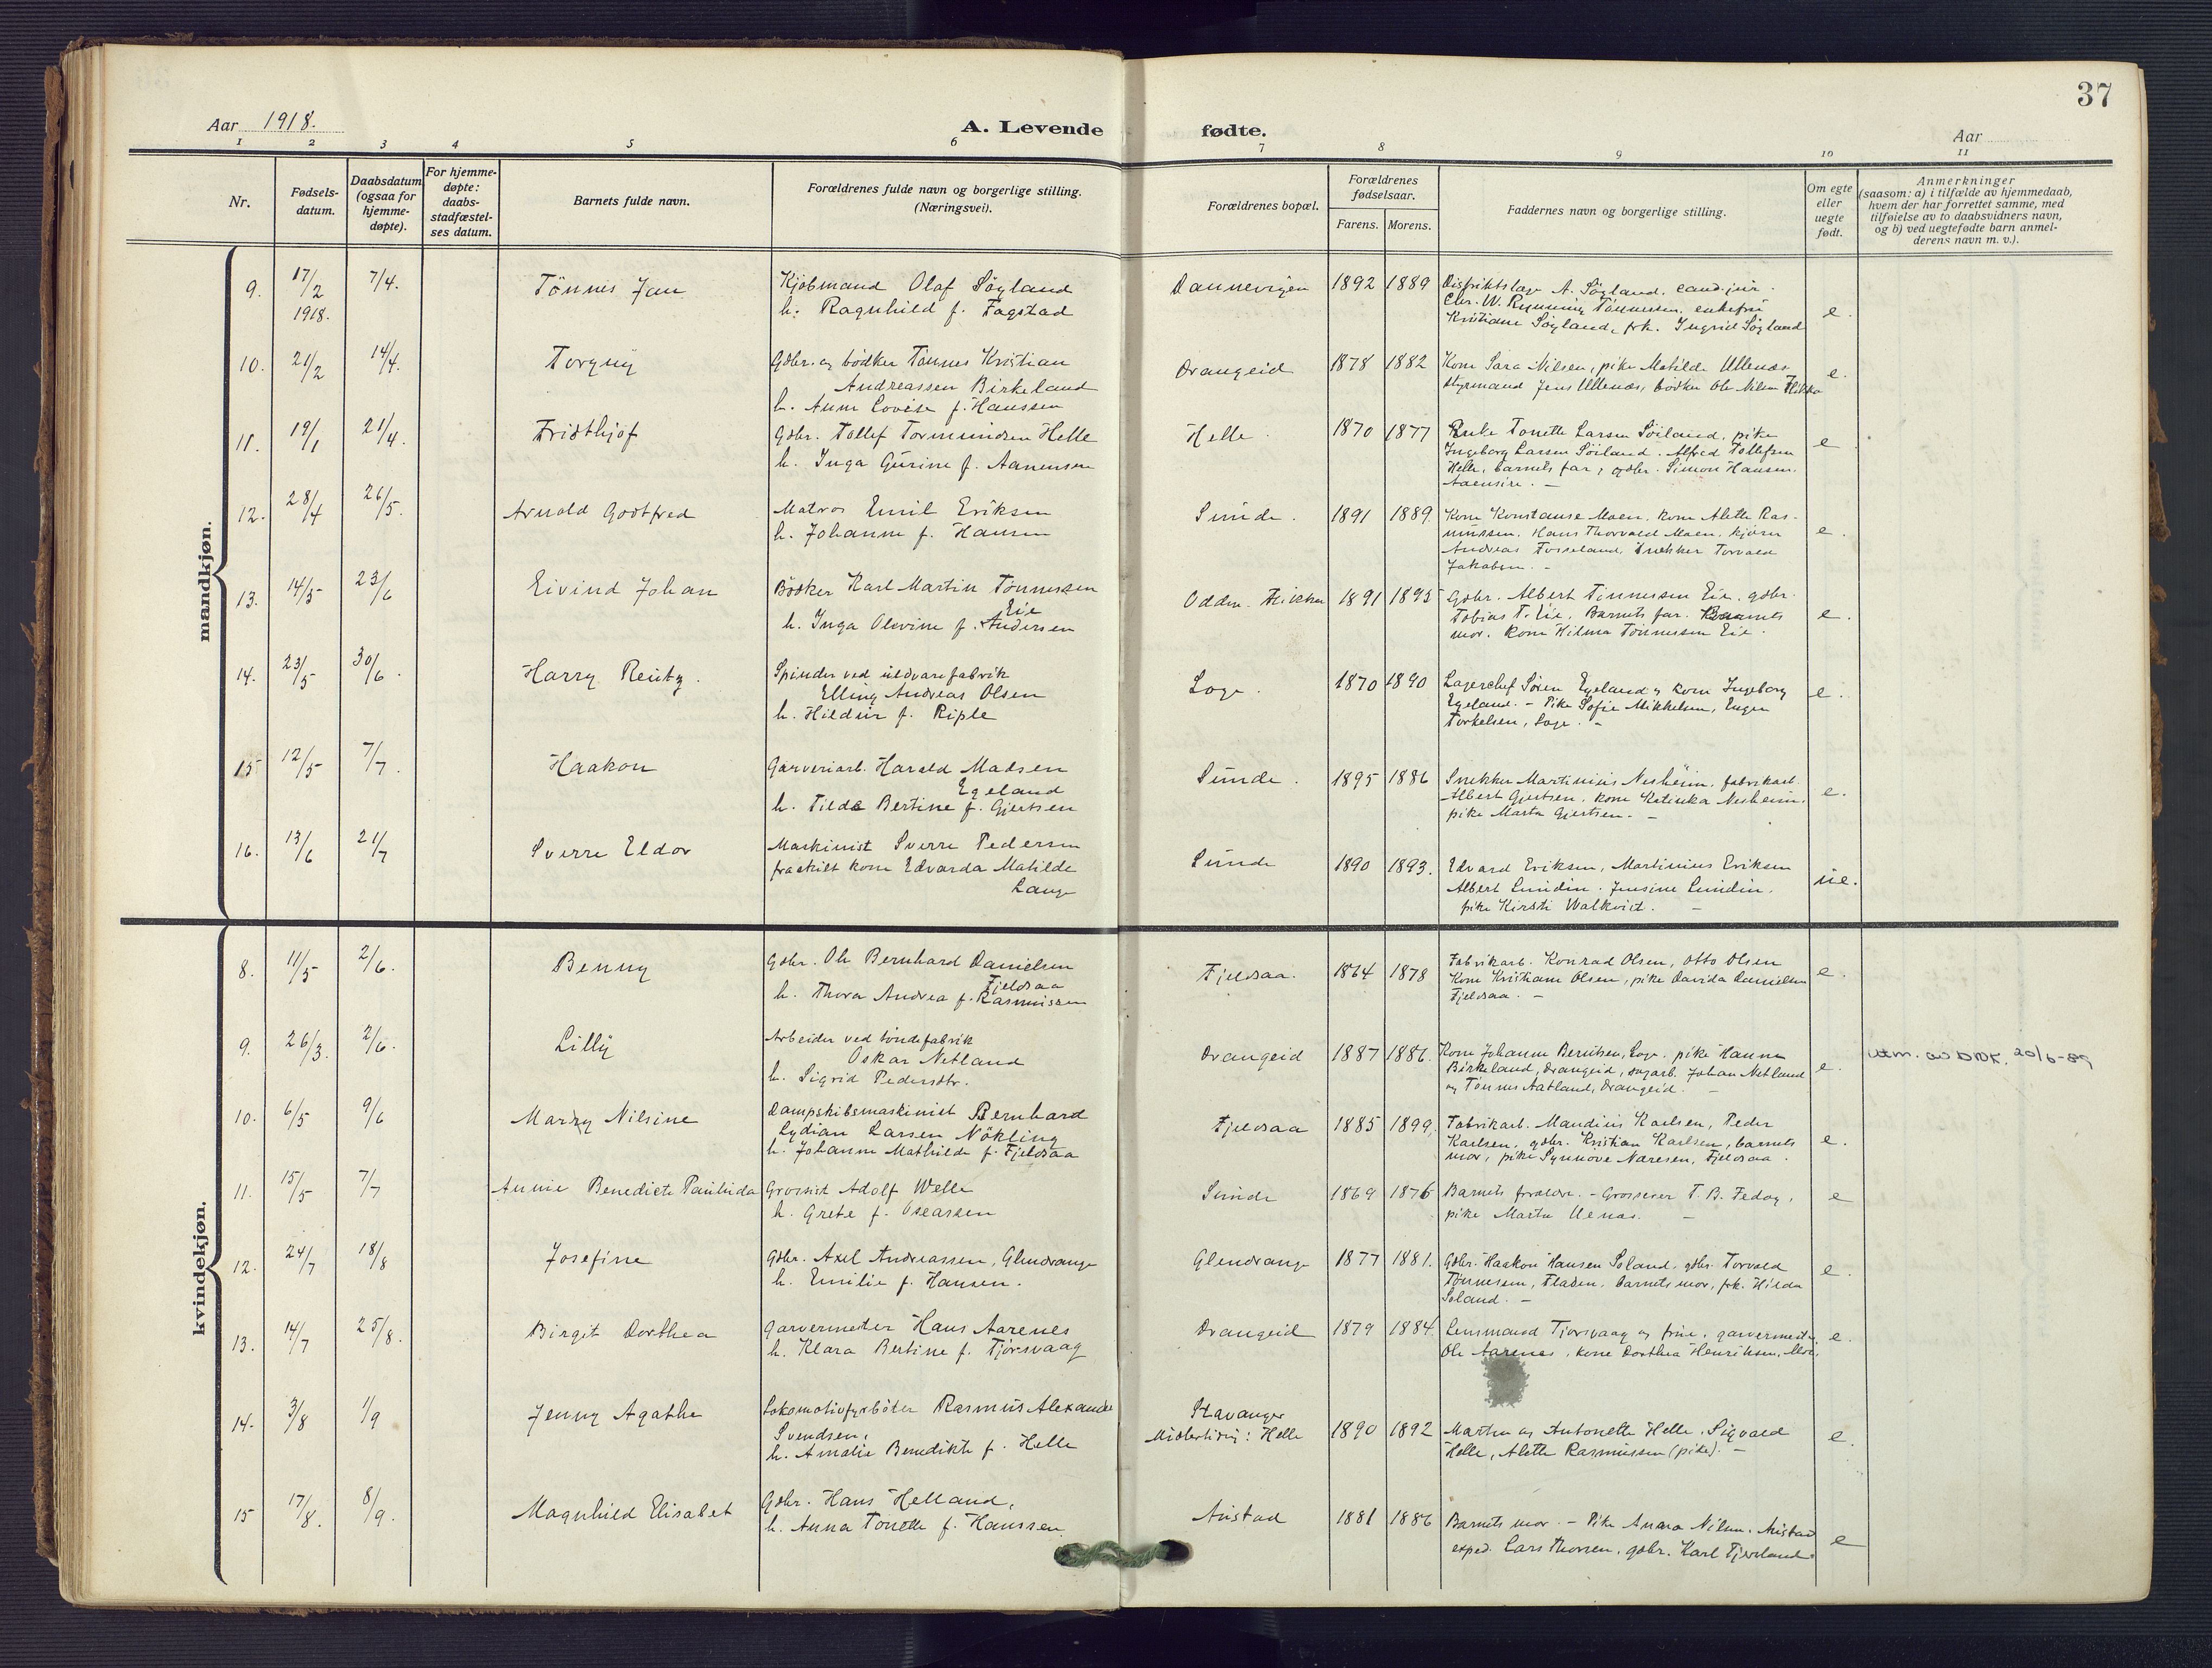 37
Aar 1918.
A. Levende fødte.
Aar
1 2 3 4 5 6 7 8 9 10 11
Nr.
Fødsels-
datum.
Daabsdatum
(ogsaa for
hjemme-
døpte).
For hjemme-
døpte:
daabs-
stadfæstel-
ses datum.
Barnets fulde navn.
Forældrenes fulde navn og borgerlige stilling.
(Næringsvei).
Forældrenes bopæl.
Forældrenes
fødselsaar.
Farens. Morens.
Faddernes navn og borgerlige stilling.
Om egte
eller
uegte
født.
Anmerkninger
(saasom: a) i tilfælde av hjemmedaab,
hvem der har forrettet samme, med
tilføielse av to daabsvidners navn,
og b) ved uegtefødte barn anmel-
derens navn m. v.).
mandkjøn.
9.
17/2
1918.
7/4.
Tönnes Jan
Kjöbmand Olaf Söyland
h. Ragnhild f. Fagstad
Dannevigen
1892 1889
Distriktslæge A. Söyland. cand. jur.
Chr. W. Rynning Tönnessen, enkefru
Kristiane Söyland, frk. Ingrid Söyland
e.
10.
21/2
14/4.
Torgny
Gdbr. og bödker Tönnes Kristian
Andreassen Birkeland
h. Anne Lovise f. Hanssen
Drangeid
1878 1882
Kone Sara Nilsen, pike Matilde Ullenæs
styrmand Jens Ullenæs, bödker Ole Nilsen Flikka
e.
11.
19/1
21/4.
Fridthjof
Gdbr. Tollef Tormundsen Helle
h. Inga Gurine f. Aanensen
Helle.
1870 1877
Enke Tonette Larsen Söiland, pike
Ingeborg Larsen Söiland. Alfred Tollefsen
Helle, barnets far, gdbr. Simon Hansen.
Aaensire. –
e
12.
28/4
26/5.
Arnold Godtfred
Matros Emil Eriksen
h. Johanne f. Hansen
Sunde.
1891 1889.
Kone Konstanse Moen, kone Alette Ras-
mussen. Hans Thorvald Moen, kjörer
Andreas Fosseland, snekker Torvald
Jakobsen. –
e.
13.
14/5
23/6
Eivind Johan
Bödker Karl Martin Tönnessen
Eie
h. Inga Olevine f. Andersen
Odden. Flikka
1891 1895
Gdbr. Albert Tönnessen Eie, gdbr.
Tobias T. Eie, Barnets far. Barnets
mor. kone Hilma Tönnessen Eie.
e.
14.
23/5
30/6.
Harry Reutz.
Spinder ved uldvarefabrik
Elling Andreas Olsen
h. Hildur f. Riple
Loge.
1870 1890
Lagerchef Sören Egeland og kone Ingeborg
Egeland. – Pike Sofie Mikkelsen, Eugen
Torkelsen, Loge. –
e.
15
12/5
7/7.
Haakon
Garveriarb. Harald Madsen
Egeland
h. Tilda Bertine f. Gjertsen
Sunde.
1895 1886
Snekker Martinius Nesheim, fabrikarb.
Albert Gjertsen, kone Katinka Nesheim,
pike Marta Gjertsen. –
e.
16.
13/6
21/7
Sverre Eldor
Maskinist Sverre Pedersen
fraskilt kone Edvarda Matilde
Lange
Sunde
1890 1893.
Edvard Eriksen, Martinius Eriksen
Albert Lundin. Jensine Lundin.
pike Kirsti Walkvist. –
ue.
kvindekjøn.
8.
11/5
2/6.
Benny
Gdbr. Ole Bernhard Danielsen
Fjeldsaa
h. Thora Andrea f. Rasmussen
Fjeldsaa.
1864 1878
Fabrikarb. Konrad Olsen, Otto Olsen
Kone Kristiane Olsen, pike Davida Danielsen
Fjeldsaa. –
e.
9.
26/3.
2/6.
Lilly
Arbeider ved töndefabrik
Oskar Netland
h. Sigrid Pedersdtr.
Drangeid
1887 1886.
Kone Johanne Berntsen, Loge. pike Hanna
Birkeland, Drangeid, sagarb. Johan Netland
og Tönnes Aatland, Drangeid. –
e.
20/6-89
10.
6/5
9/6
Marry Nilsine
Dampskibsmaskinist Bernhard
Lydian Larsen Nökling
h. Johanne Mathilde f. Fjeldsaa
Fjeldsaa
1885 1899.
Fabrikarb. Mandius Karlsen, Peder
Karlsen, gdbr. Kristian Karlsen, barnets
mor, pike Synnöve Naresen, Fjeldsaa.
e.
11.
15/5
7/7
Annie Benedicte Paulida
Grossist Adolf Welle
h. Grete f. Oseassen
Sunde
1869 1876
Barnets forældre. – Grosserer T. B. Fedog,
pike Marta Uenas. –
e
12.
24/7
18/8
Josefine
Gdbr. Axel Andreassen, Glendrange
h. Emilie f. Hansen.
Glendrange
1877 1881.
Gdbr. Haakon Hansen Soland, gdbr. Torvald
Tönnesen, Fladen. barnets mor, frk. Hilda
Soland. –
e.
13.
14/7
25/8.
Birgit Dorthea
Garvermester Hans Aarenes
h. Klara Bertine f. Tjörsvaag
Drangeid
1879 1884.
Lensmand Tjorsvaag og frue, garvermester
Ole Aarenes, kone Dorthea Henriksen,
e.
14.
3/8
1/9
Jenny Agathe
Lokomotivfyrböter Rasmus Alexander
Svendsen,
h. Amalie Benedikte f. Helle
Stavanger
Midlertidig: Helle
1890 1892
Martin og Antonette Helle. Sigvald
Helle, Alette Rasmussen (pike). –
e.
15
17/8.
8/9.
Magnhild Elisabet
Gdbr. Hans Helland,
h. Anna Tonette f. Hanssen
Austad
1881 1886
Barnets mor. – Pike Anna Nilsen, Austad
exped. Lars Thorsen, gdbr. Karl Tjersland
e